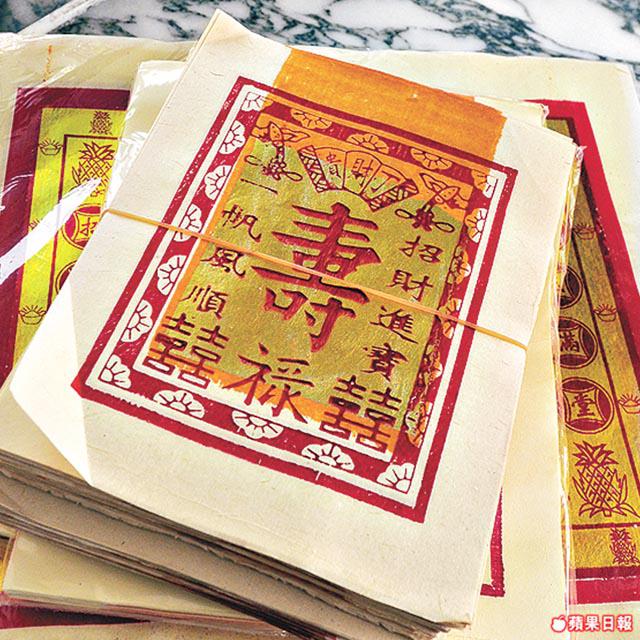 招財進寶
壽
祿
一帆風順
囍
囍
招
萬
蘋果日報